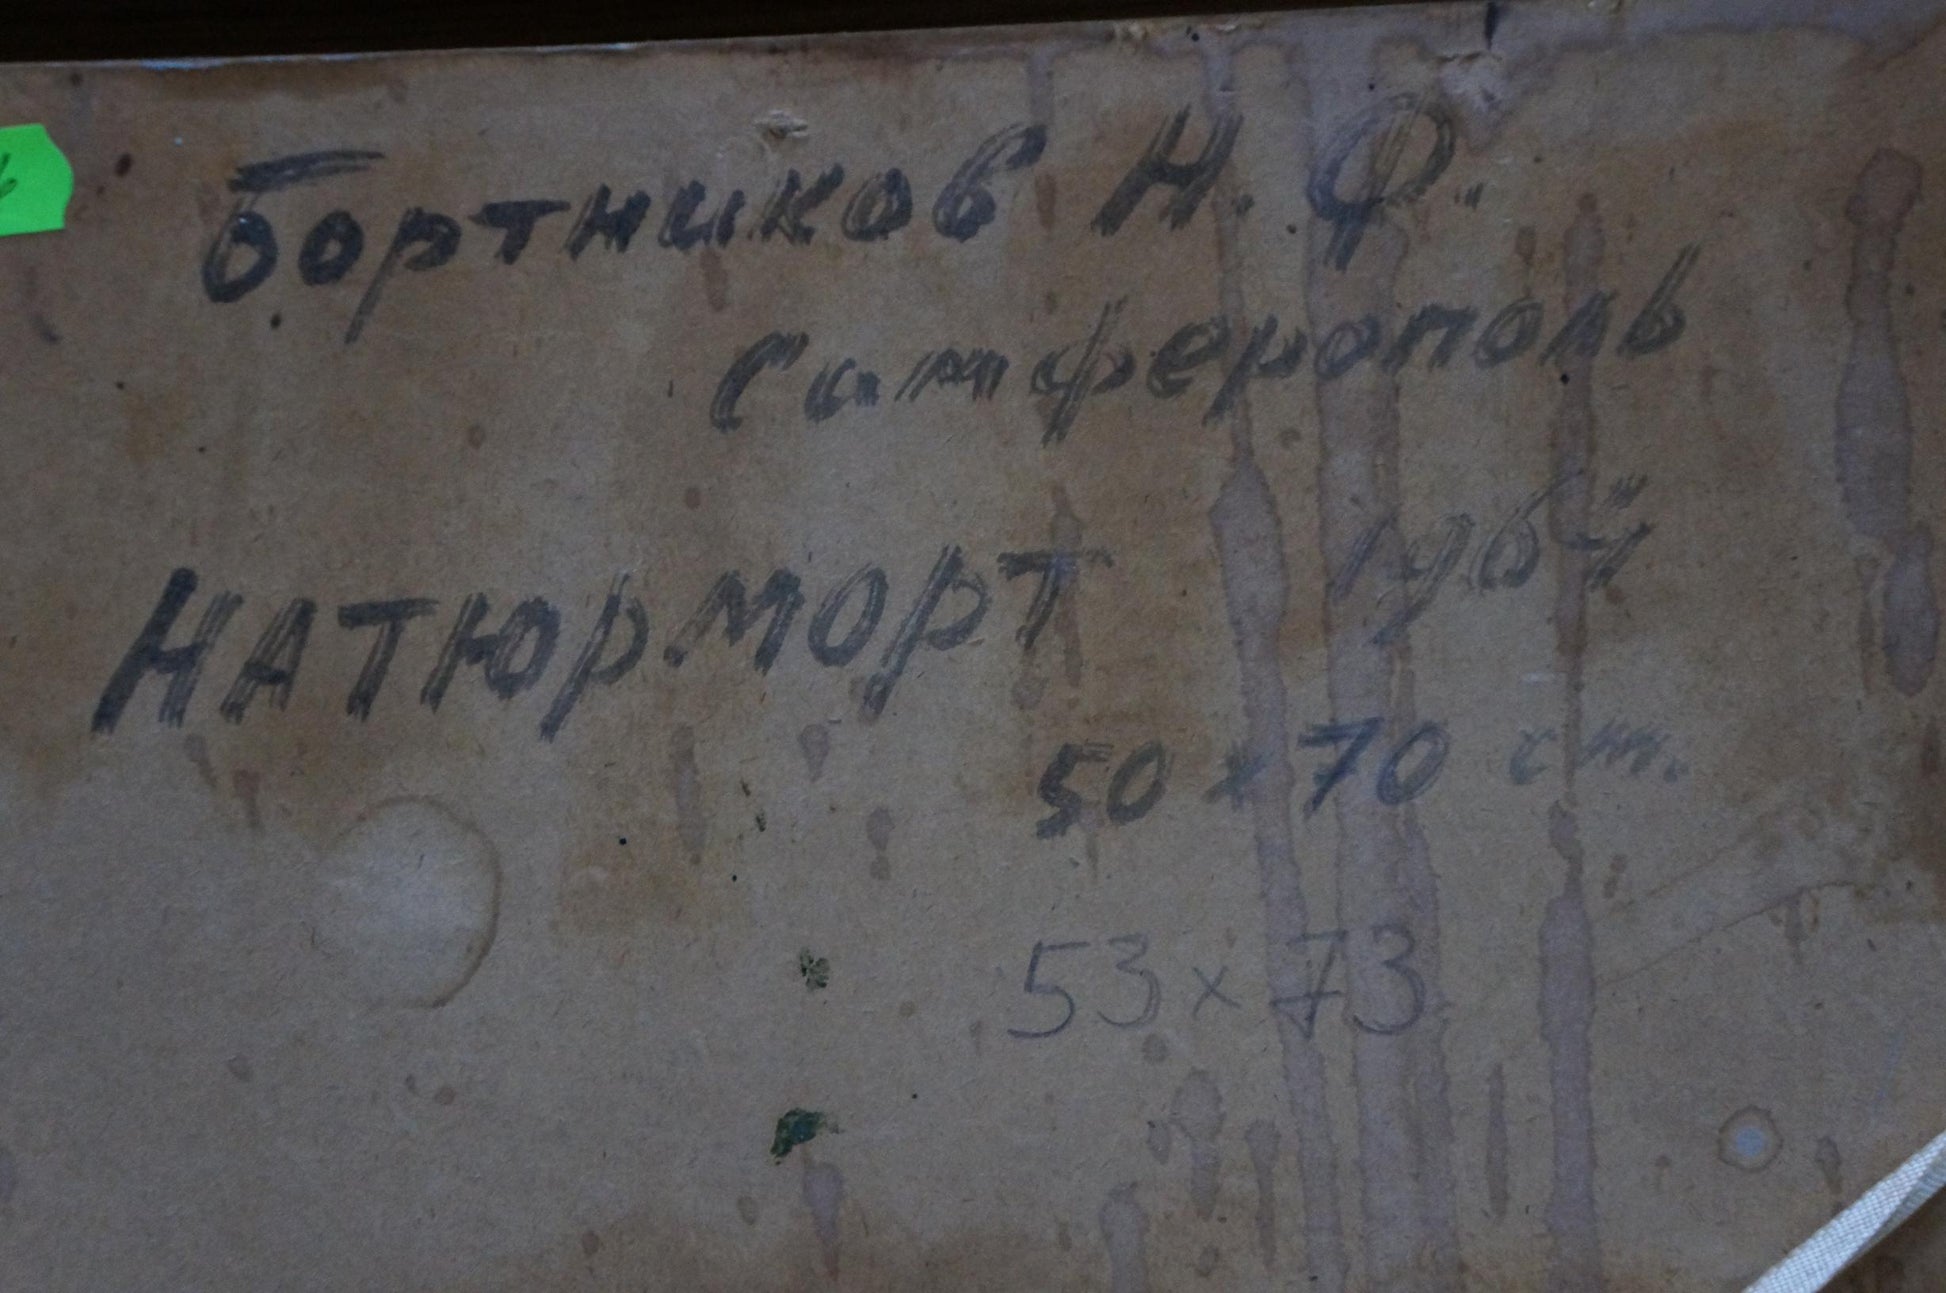 Бортников Н. Ф.
Симферополь
НАТЮРМОРТ 1964
50 x 70 см.
53 x 73